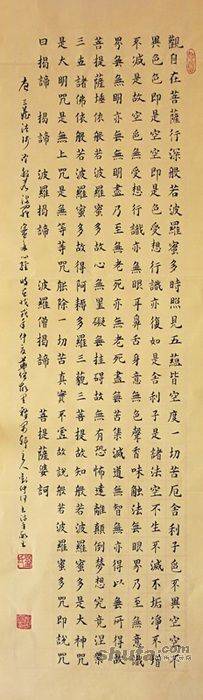 觀自在菩薩行深般若波羅蜜多時照見五蘊皆空度一切苦厄舍利子色不異空空不
異色色即是空空即是色受想行識亦復如是舍利子是諸法空相不生不滅不垢不淨不增
不減是故空中無色無受想行識無眼耳鼻舌身意無色聲香味觸法無眼界乃至無意識
界無無明亦無無明盡乃至無老死亦無老死盡無苦集滅道無智亦無得以無所得故
菩提薩埵依般若波羅蜜多故心無罣礙無罣礙故無有恐怖遠離顛倒夢想究竟涅槃
三世諸佛依般若波羅蜜多故得阿耨多羅三藐三菩提故知般若波羅蜜多是大神咒
是大明咒是無上咒是無等等咒能除一切苦真實不虛故說般若波羅蜜多咒即說咒
曰揭諦 揭諦 波羅揭諦 波羅僧揭諦 菩提薩婆訶
唐三藏法師
shufa.com